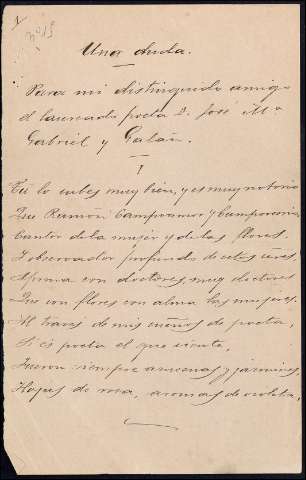 1
nº 15
Una duda.
Para mi distinguido amigo
el laureado poeta D. José Mª
Gabriel y Galán.
I
Tu lo sabes muy bien, y es muy notorio
Que Ramón Campoamor y Campoosorio,
Cantor de la mujer y de las flores.
Y observador profundo de estos seres
Afirma con doctores, muy doctores
Que son flores con alma las mujeres.
Al traves de mis sueños de poeta,
Si es poeta el que siente,
Fueron siempre azucenas y jazmines,
Hojas de rosa, aromas de violeta,